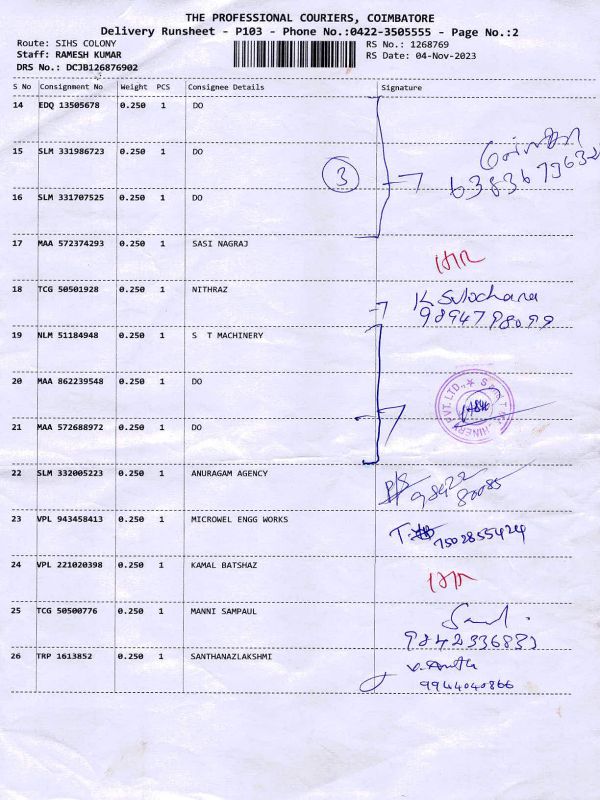 THE PROFESSIONAL COURIERS, COIMBATORE
Delivery Runsheet - P103 - Phone No.:0422-3505555 - Page No.:2
Route: SIHS COLONY RS No.: 1268769
Staff: RAMESH KUMAR RS Date: 04-Nov-2023
DRS No.: DCJB126876902
S No Consignment No Weight PCS Consignee Details Signature
14 EDQ 13505678 0.250 1 DO
15 SLM 331986723 0.250 1 DO
3 6383679632
16 SLM 331707525 0.250 1 DO
17 MAA 572374293 0.250 1 SASI NAGRAJ
18 TCG 50501928 0.250 1 NITHRAZ
K. Sulochana
9894798099
19 NLM 51184948 0.250 1 S T MACHINERY
20 MAA 862239548 0.250 1 DO
21 MAA 572688972 0.250 1 DO
22 SLM 332005223 0.250 1 ANURAGAM AGENCY
98422
80085
23 VPL 943458413 0.250 1 MICROWEL ENGG WORKS
7502855424
24 VPL 221020398 0.250 1 KAMAL BATSHAZ
25 TCG 50500776 0.250 1 MANNI SAMPAUL
9842336831
26 TRP 1613852 0.250 1 SANTHANAZLAKSHMI
9944040866